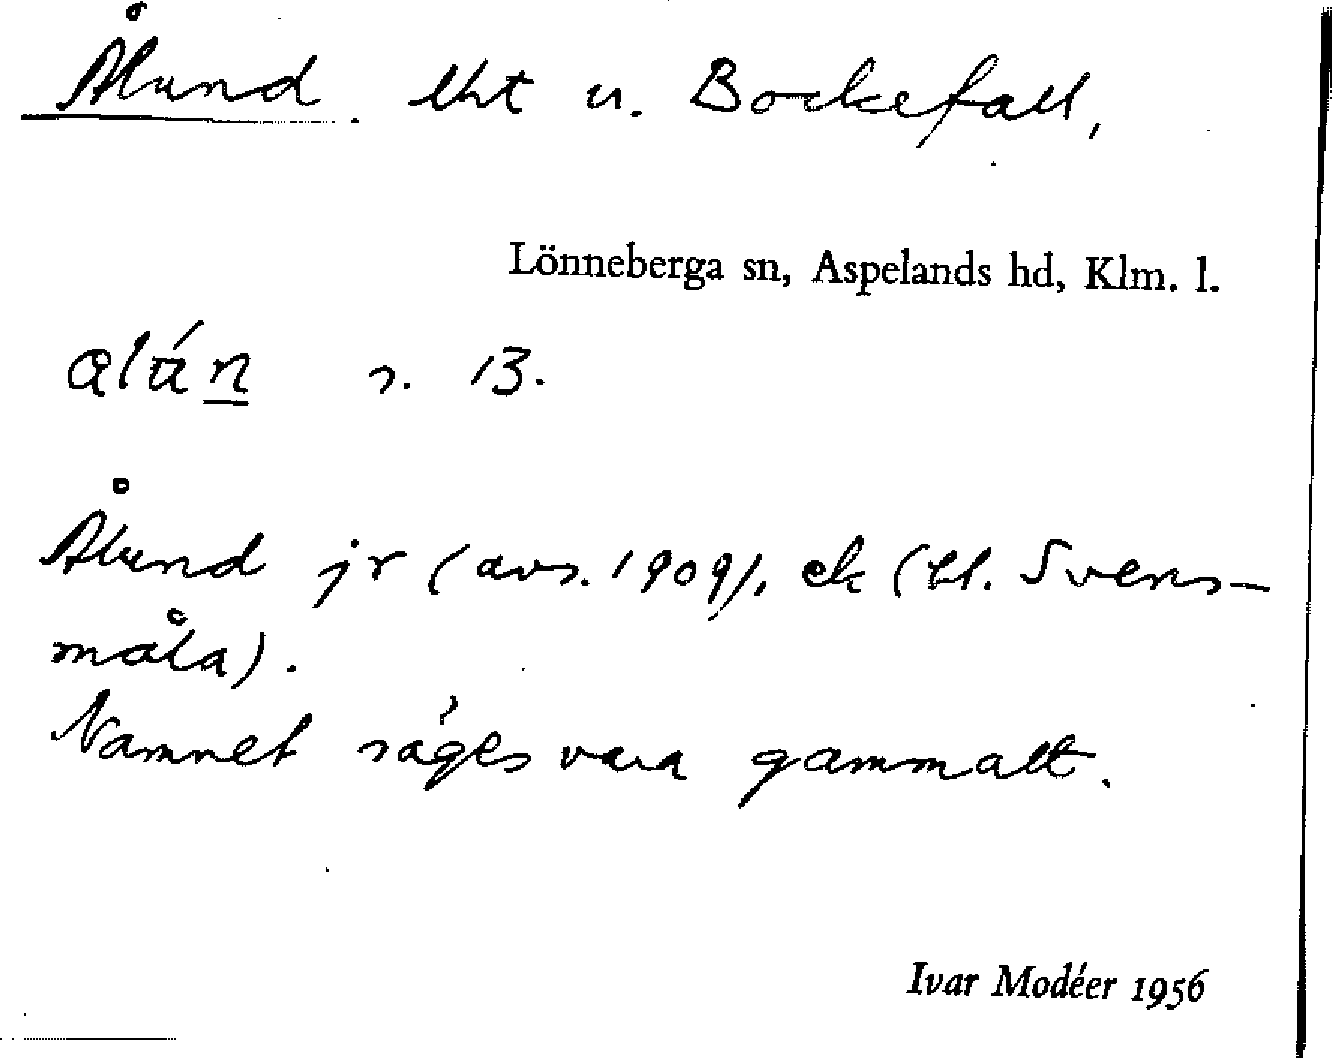 Ålund. lht u. Bockefall,
Lönneberga sn, Aspelands hd, Klm. l.
s. 13.
Ålund jr (avs. 1909), ek (bl. Svens-
måla).
Namnet säges vara gammalt.
Ivar Modéer 1956